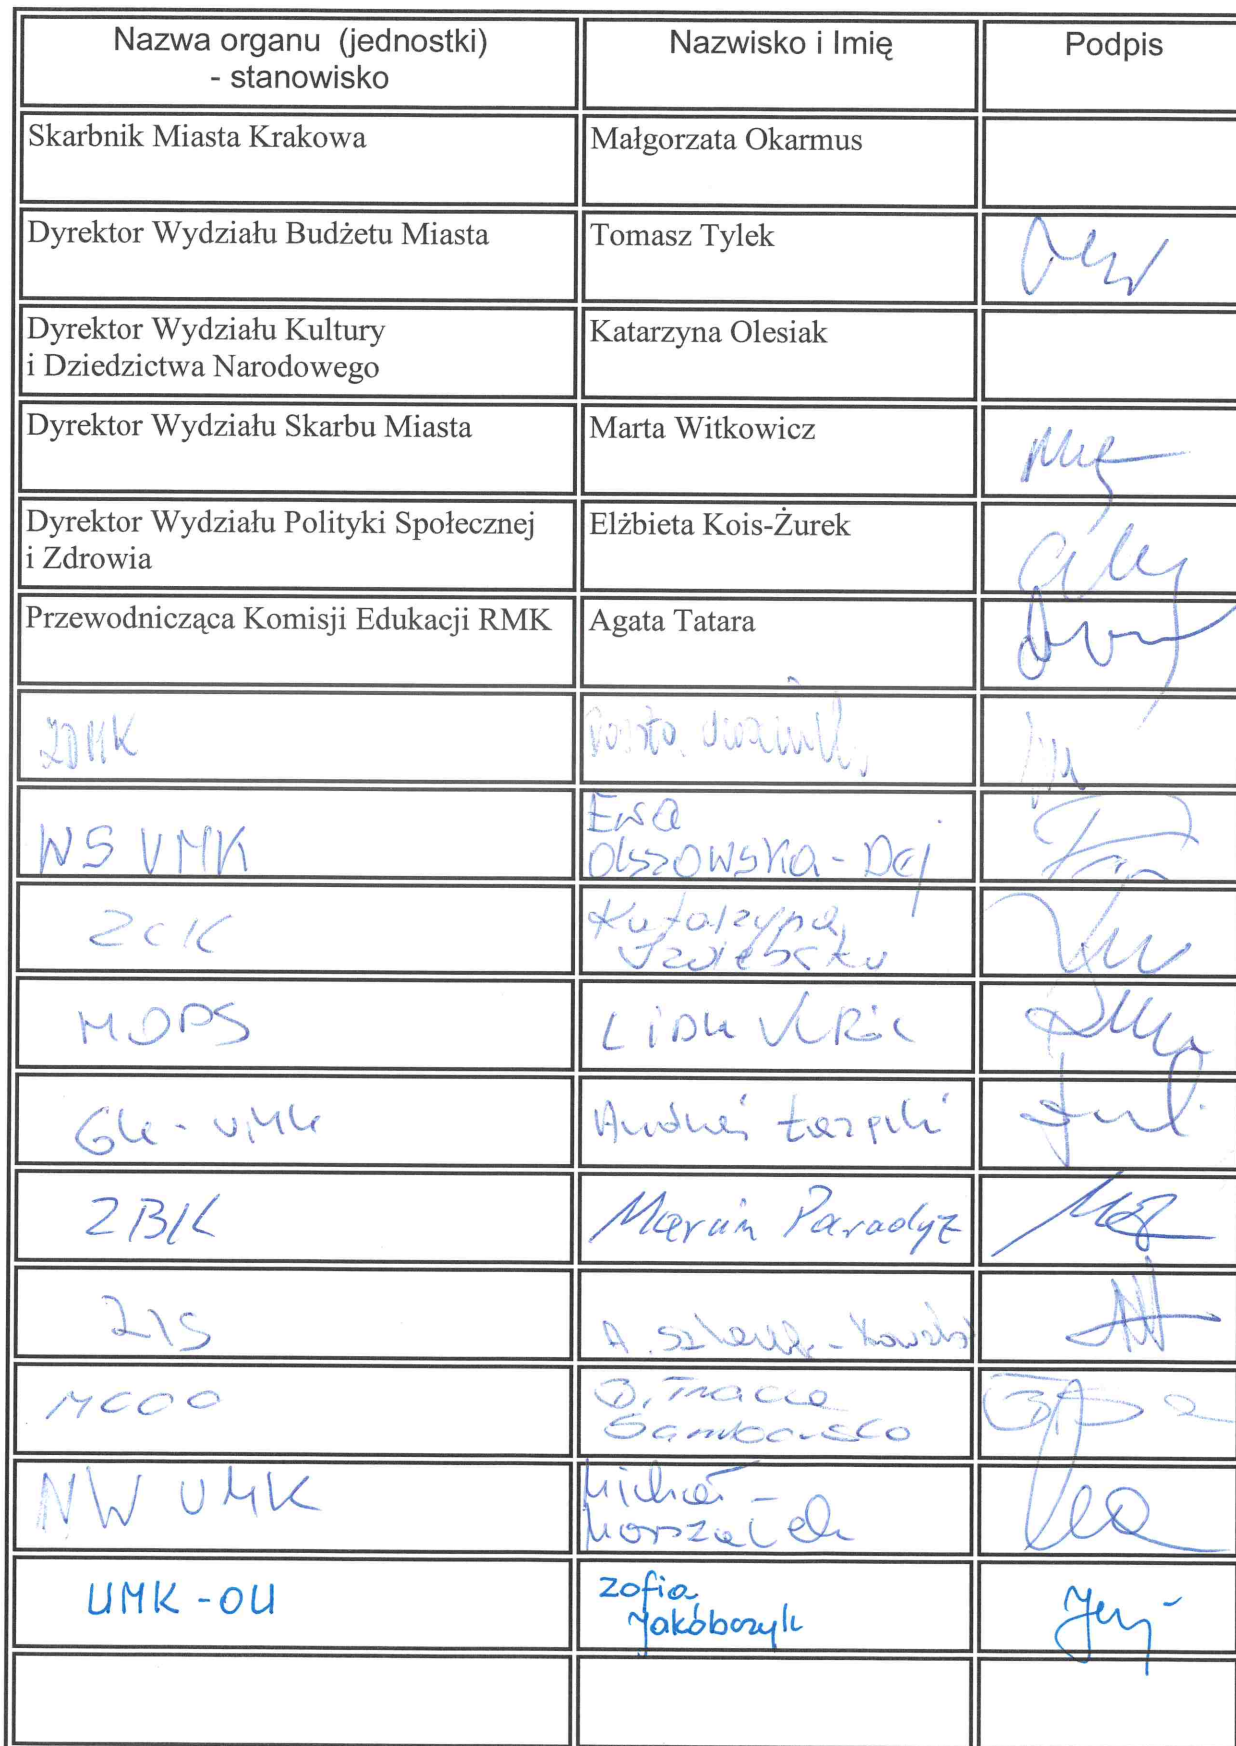 Nazwa organu (jednostki)
- stanowisko
Nazwisko i Imię
Podpis
Skarbnik Miasta Krakowa
Małgorzata Okarmus
Dyrektor Wydziału Budżetu Miasta
Tomasz Tylek
Dyrektor Wydziału Kultury
i Dziedzictwa Narodowego
Katarzyna Olesiak
Dyrektor Wydziału Skarbu Miasta
Marta Witkowicz
Dyrektor Wydziału Polityki Społecznej
i Zdrowia
Elżbieta Kois-Żurek
Przewodnicząca Komisji Edukacji RMK
Agata Tatara
ZDMK
WS UMK
Ewa
Olszowska-Dej
ZCK
Katarzyna
MOPS
GK-UMK
ZBK
Marcin Paradyż
ZIS
A.
MCOO
NW UMK
Michał
Marszałek
UMK-OU
Zofia
Jakóbczyk